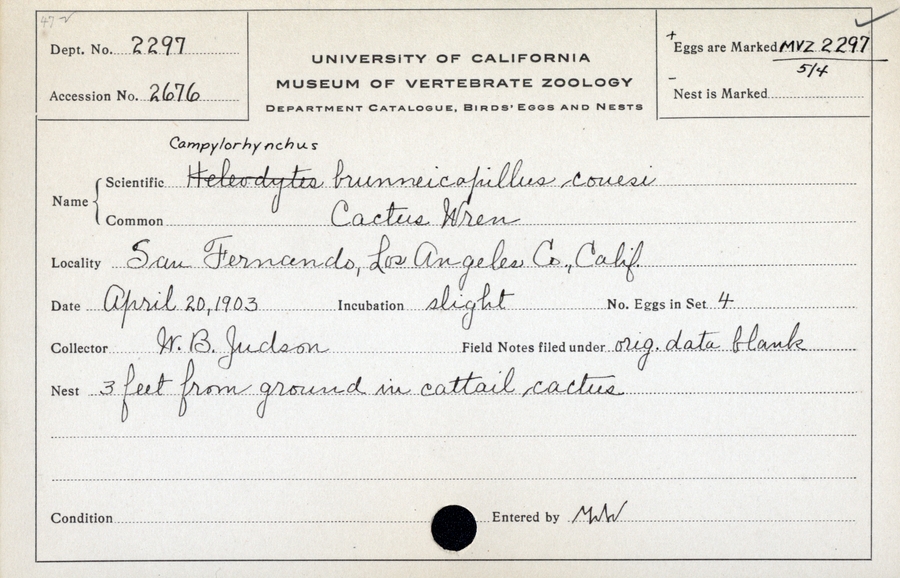 47
Dept. No. 2297
Accession No. 2676
UNIVERSITY OF CALIFORNIA
MUSEUM OF VERTEBRATE ZOOLOGY
DEPARTMENT CATALOGUE, BIRDS' EGGS AND NESTS
+ Eggs are Marked MVZ 2297
5/4
- Nest is Marked
Campylorhynchus
Name Scientific Heleodytes brunneicapillus couesi
Common Cactus Wren
Locality San Fernando, Los Angeles Co., Calif.
Date April 20, 1903 Incubation slight No. Eggs in Set 4
Collector W. B. Judson Field Notes filed under orig. data blank
Nest 3 feet from ground in cattail cactus
Condition Entered by